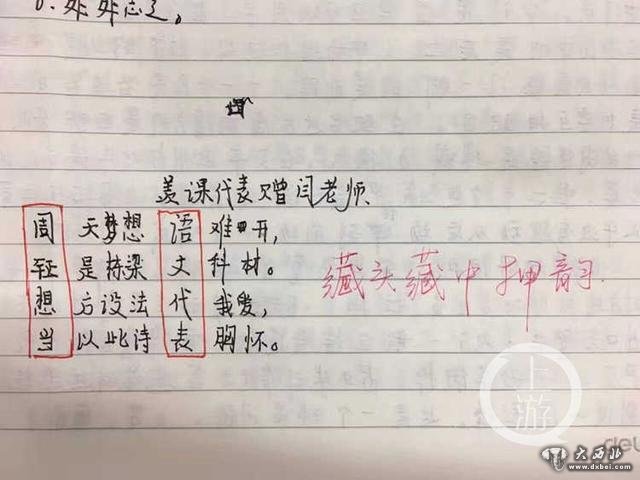 志之。
美课代表赠闫老师
周天梦想语难开,
是栋梁文科材。
想方设法代我爱,
当以此诗表胸怀。
藏头藏中押韵.
上游
大西北
www.dxbei.com